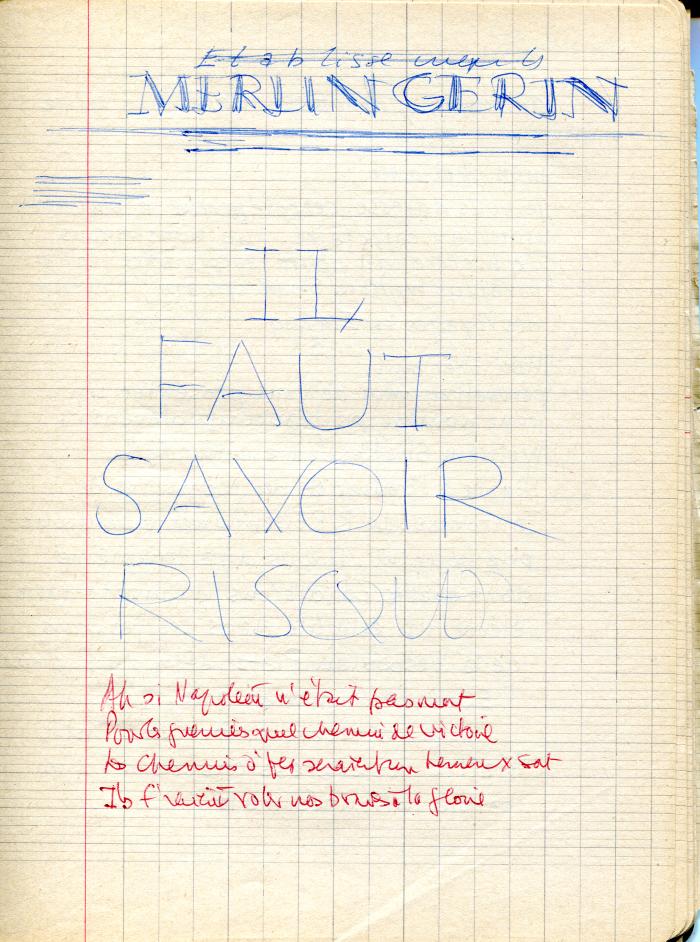 Etablissements
MERLIN GERIN
IL
FAUT
SAVOIR
RISQUE
Ah si Napoléon n'était pas mort
Pour les guerriers quel chemin de victoire
Les chemins d' fer seraient un heureux sort
Ils f'raient voler nos braves à la gloire